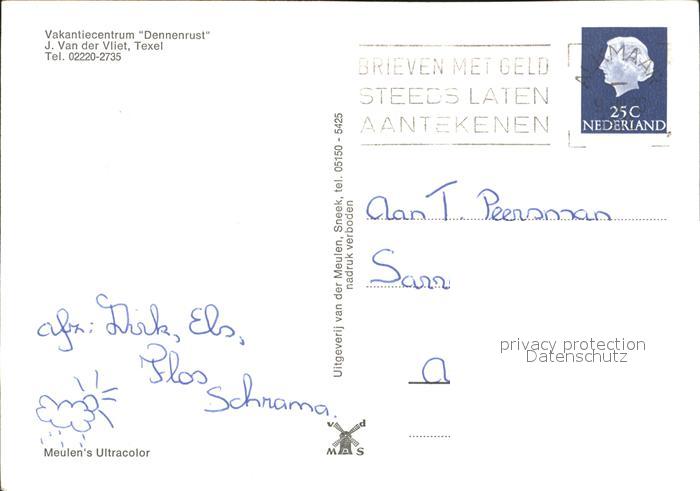 Vakantiecentrum "Dennenrust"
J. Van der Vliet, Texel
Tel. 02220-2735
BRIEVEN MET GELD
STEEDS LATEN
AANTEKENEN
ALKMAAR
25C
NEDERLAND
Uitgeverij van der Meulen, Sneek, tel. 05150 - 5425
nadruk verboden
Aan T. Peersman
Sarr
A
privacy protection
Datenschutz
afz: Dirk, Els,
Flos
Schrama.
v d
M S
Meulen's Ultracolor